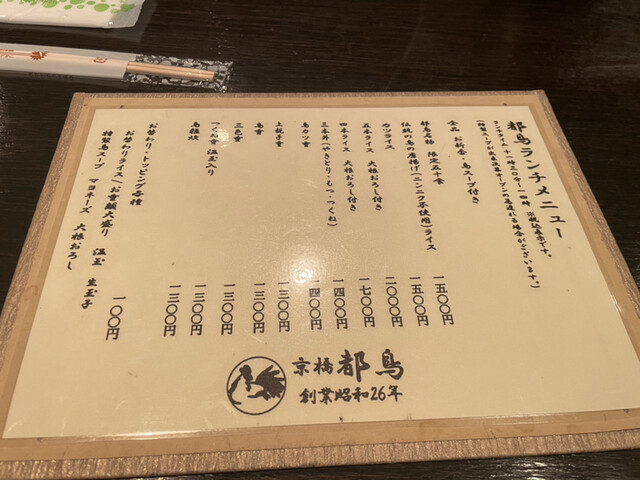 都鳥ランチメニュー
ランチタイム 十一時三〇分〜一四時 ※税込表示です。
全品 お新香・鳥スープ付き
都鳥名物 限定五十食
伝統の鳥の唐揚げ(ニンニク不使用)ライス 一五〇〇円
カツライス 一五〇〇円
五本ライス 大根おろし付き 二〇〇〇円
四本ライス 大根おろし付き 一七〇〇円
三本丼(やきとり・もつ・つくね) 一四〇〇円
鳥カツ重 一四〇〇円
上親子重 一三〇〇円
鳥重 一三〇〇円
三色重 一三〇〇円
つくね重 温玉入り 一三〇〇円
鳥雑炊 一三〇〇円
お替わり・トッピング各種
お替わりライス/お重類大盛り 温玉 生玉子
特製鳥スープ マヨネーズ 大根おろし 一〇〇円
京橋 都鳥
創業昭和26年